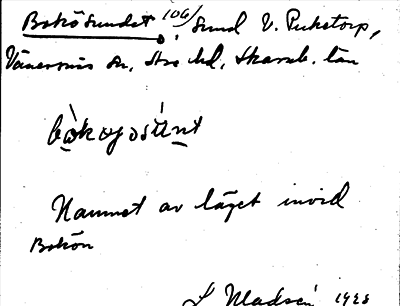 Bokösundet 106/ i sund V. Pukstorp,
Vänersnäs sn, Åse hd, Skarab. län
bòkɑyɔsúnt
Namnet av läget invid
Bokön
L Madsén 1928